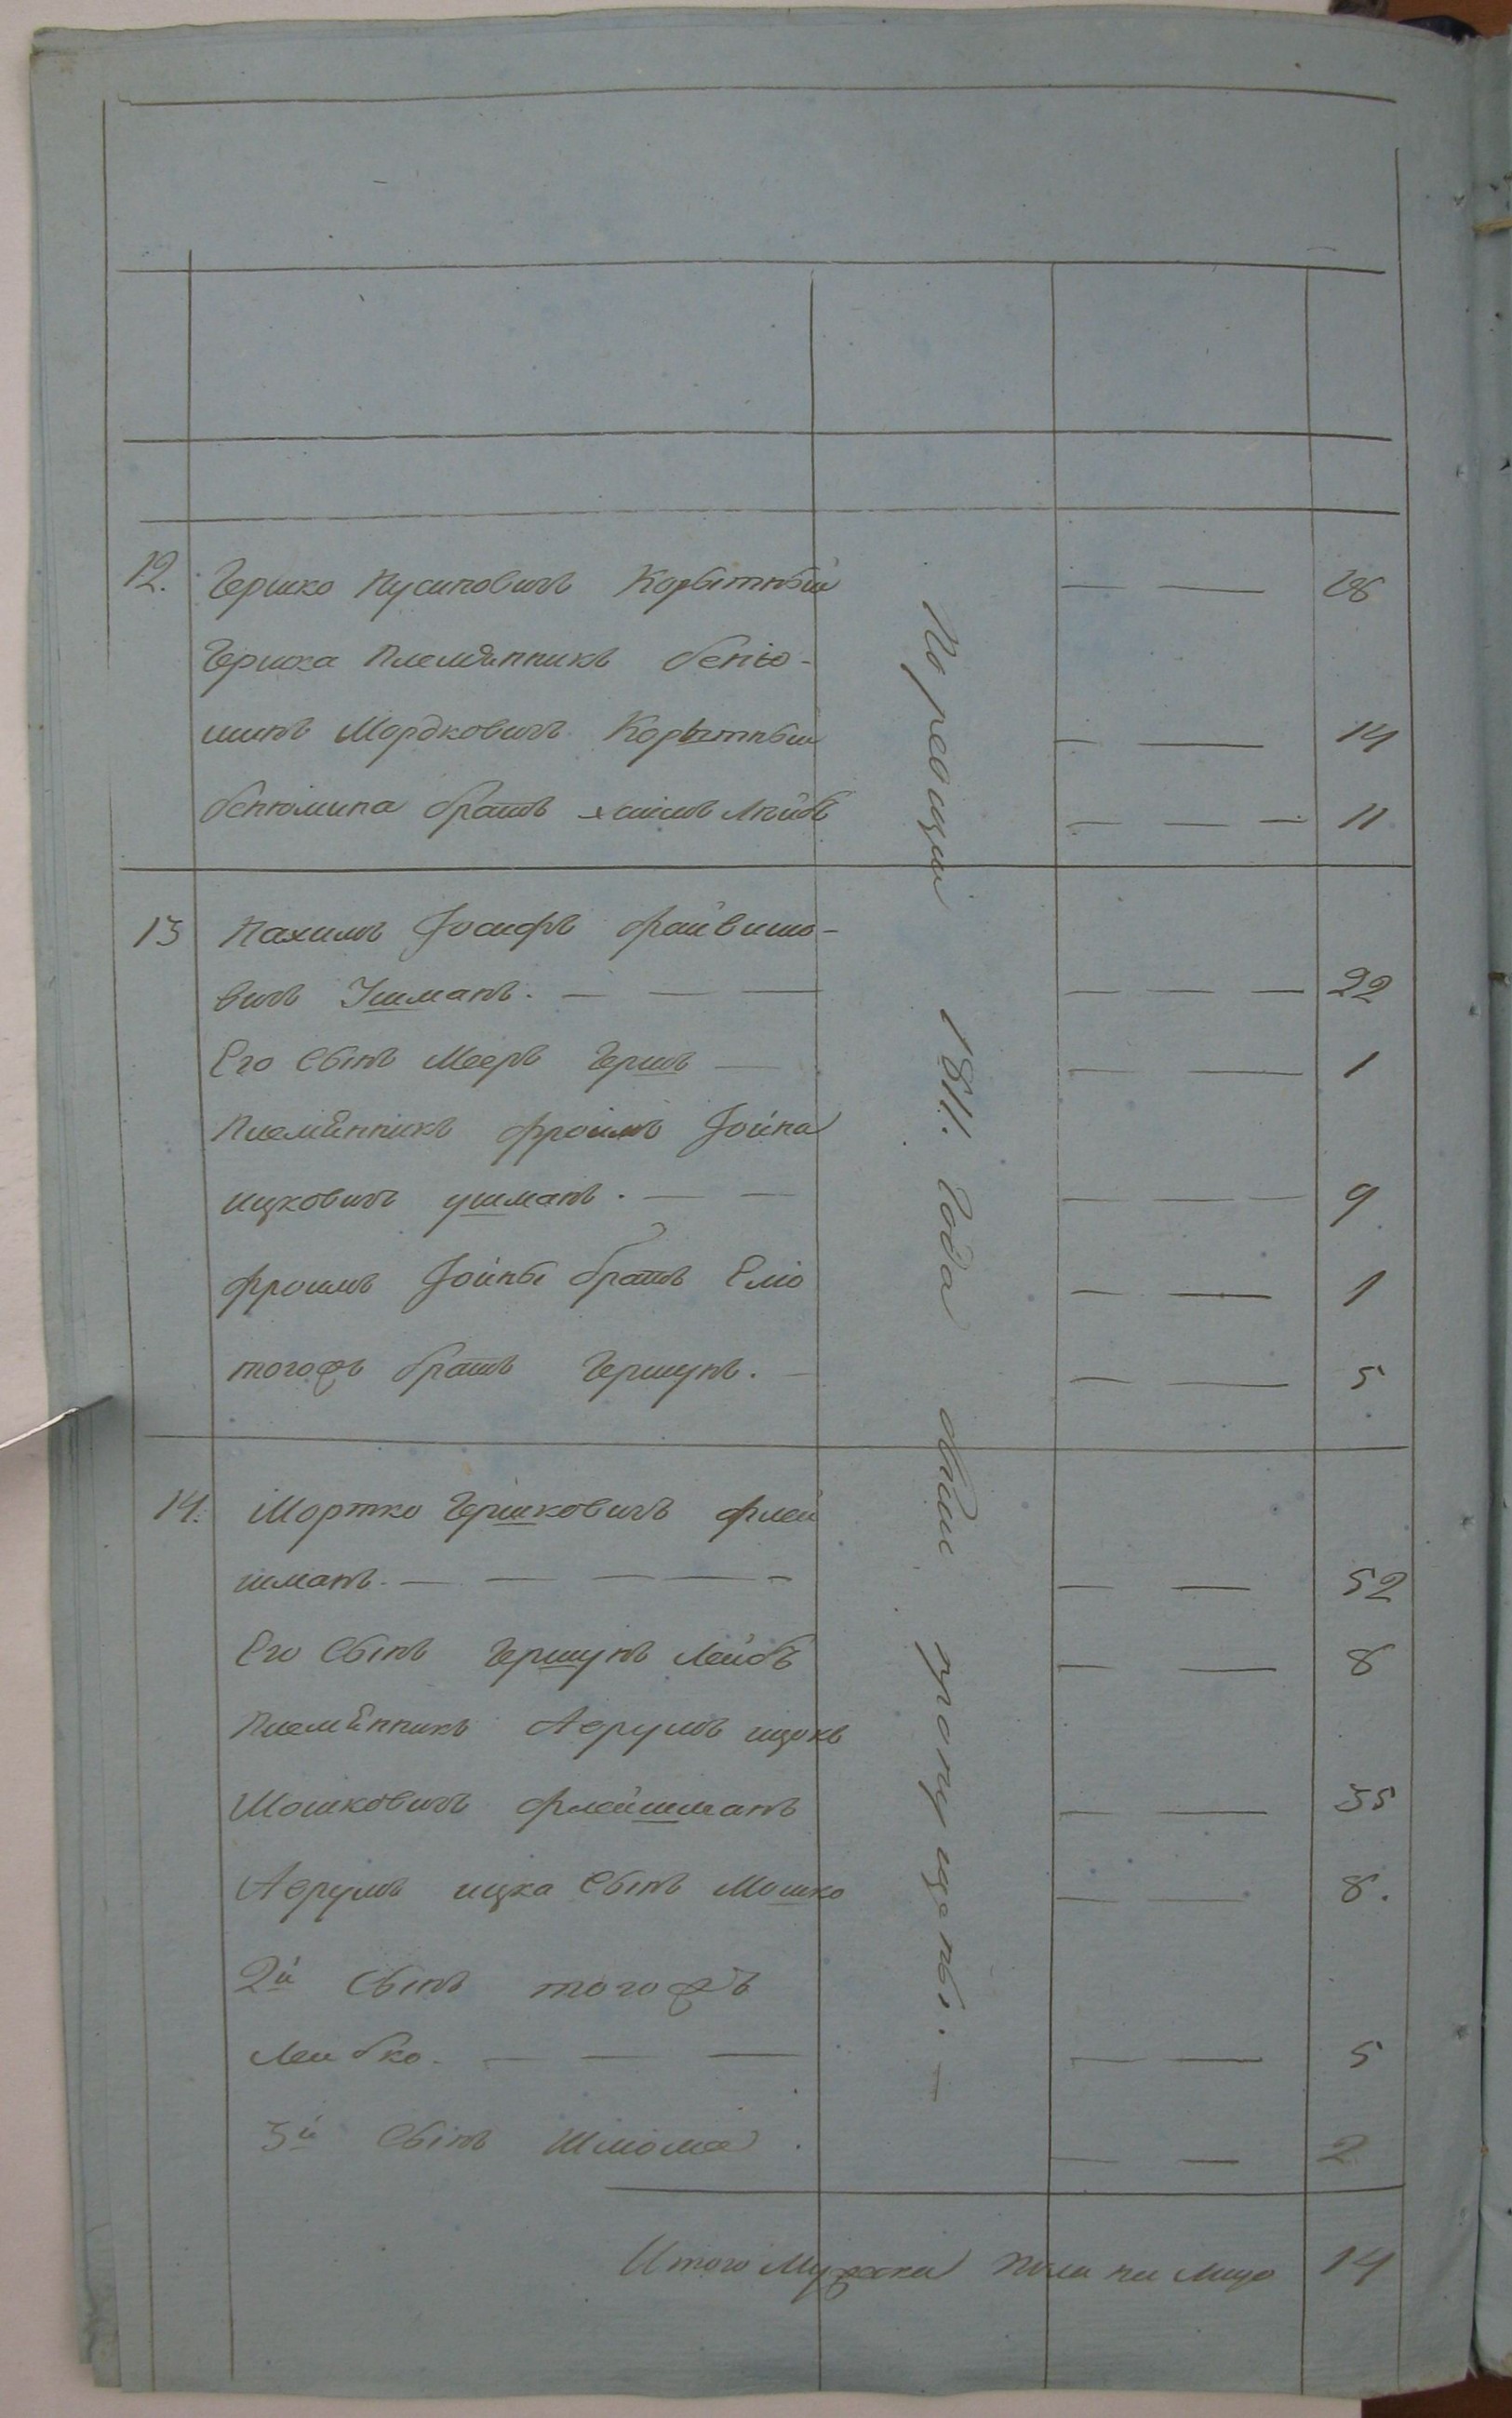 12. Гершко Нусиновичъ Корытный — — 28
Гершка племянникъ бенiо-
минъ Мордковичъ Корытный — — 14
бенюмина братъ хаимъ Лейбъ — — — 11
13 Нахимъ Iосифъ файвишо-
вичъ Ушманъ. — — — — — — 22
Его сынъ Мееръ Гершъ — — — 1
Племѣнникъ фроимъ Iойна
ицковичъ ушманъ. — — — — — 9
фроимъ Iойны братъ Еліо — — 1
тогожъ братъ Гершунъ. — — — 5
14. Мортко Гершковичъ флей
шманъ. — — — — — — — 52
Его сынъ Гершунъ Лейбъ — — 8
Племѣнникъ Аврумъ ицокъ
Мошковичъ флейшманъ — — 35
Аврумъ ицка сынъ Мошко — — 8.
2й сынъ тогожъ
Лейбко. — — — — — 5
3й сынъ Шлюма. — — 2
Итого Мужеска пола на лицо 14
По ревизiи 1811. года были пропущены. —